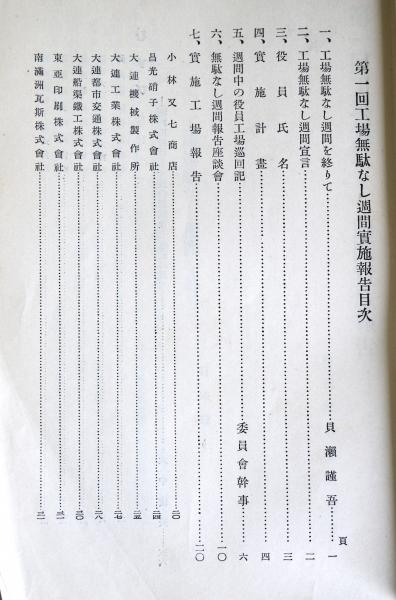 第一回工場無駄なし週間實施報告目次
頁
一、工場無駄なし週間を終りて……貝瀬謹吾…一
二、工場無駄なし週間宣言……二
三、役員氏名……三
四、實施計畫……四
五、週間中の役員工場巡回記……委員會幹事…六
六、無駄なし週間報告座談會……一〇
七、實施工場報告……二〇
小林又七商店……二〇
昌光硝子株式會社……二四
大連機械製作所……二五
大連工業株式會社……二七
大連都市交通株式會社……二八
大連船渠鐵工株式會社……三〇
東亞印刷株式會社……三一
南滿洲瓦斯株式會社……三二